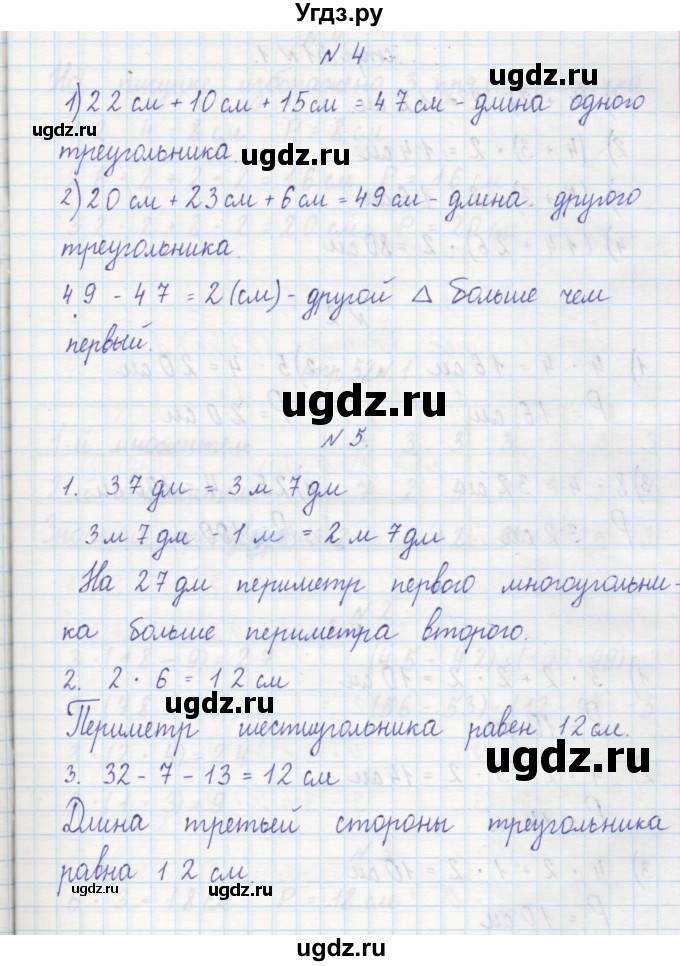 Угдз.ру
N 4
1) 22 см + 10 см + 15 см = 47 см - длина одного
треугольника.
2) 20 см + 23 см + 6 см = 49 см - длина другого
треугольника.
49 - 47 = 2 (см) - другой △ больше чем
первый.
N 5.
1. 37 дм = 3 м 7 дм
3 м 7 дм - 1 м = 2 м 7 дм
На 27 дм периметр первого многоугольни-
ка больше периметра второго.
2. 2 · 6 = 12 см
Периметр шестиугольника равен 12 см.
3. 32 - 7 - 13 = 12 см
Длина третьей стороны треугольника
равна 12 см.
ugdz.ru
ugdz.ru
ugdz.ru
ugdz.ru
ugdz.ru
ugdz.ru
ugdz.ru
ugdz.ru
ugdz.ru
ugdz.ru